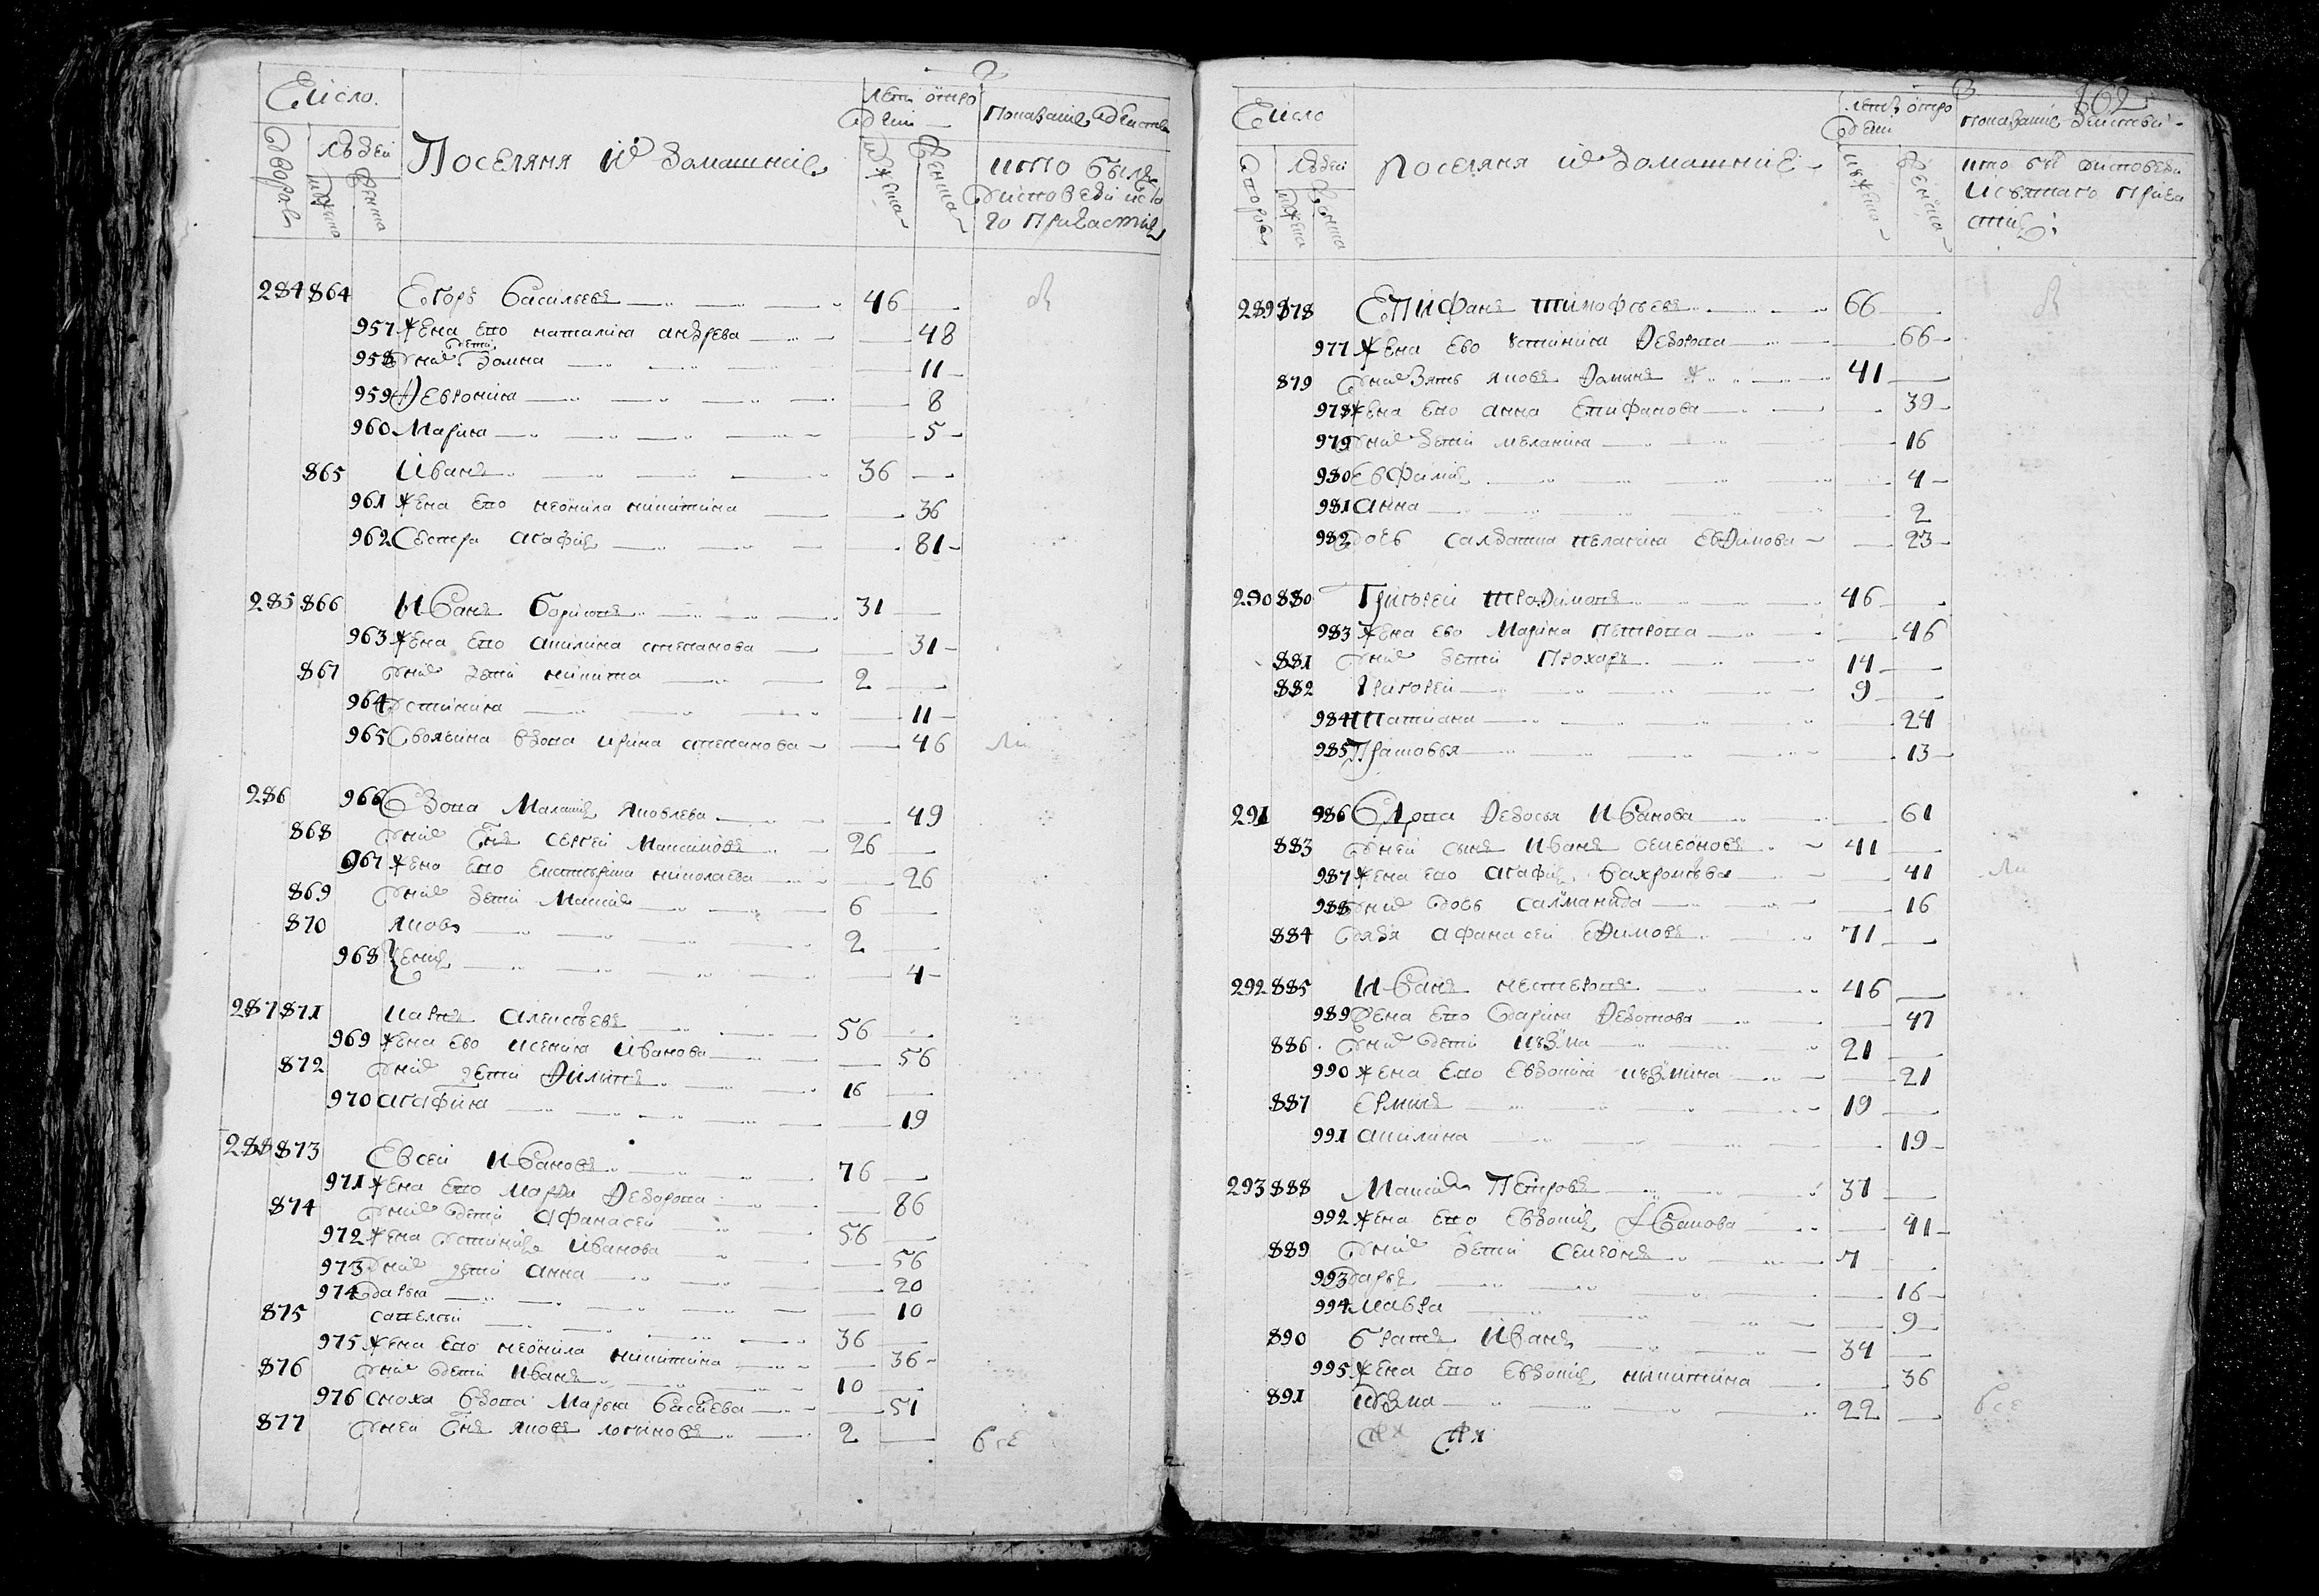 Число
Лета от ро
Показание действа
Дворов
Людей
Поселяня и домашние
кто был у
исповеди и с
го причастия
284 864 Егоръ Васильевъ 46
957 Жена ево наталия андреева 48
958 У них дети Домна 11
959 Февронiя 8
960 Марiя 5
865 Иванъ 36
961 Жена ево неонила никитина 36
962 Сестра агафия 81
285 866 Иванъ 31
963 Жена ево акилина степанова 31
867 У них дети никита 2
964 Устинiя 11
965 Своячина вдова ирина степанова 46
286 966 Вдова Маланiя Яковлева 49
868 У ней Снъ сергей Максимовъ 26
967 Жена ево Екатерина николаева 26
869 У них дети Максим 6
870 яковъ 2
968 4
287 871 карпъ алексѣевъ 56
969 Жена ево ксения Иванова 56
872 У них дети Филипъ 16
970 агафия 19
288 873 Евсей Ивановъ 76
971 Жена ево марфа Федорова 86
874 У них дети афанасей 56
972 Жена Устиния Иванова 56
973 У них дети анна 20
974 Дарья 10
875 савелей 36
975 Жена ево неонила никитина 36
876 У них дети Иванъ 10
976 сноха вдова Марья 51
877 У ней Снъ яковъ логиновъ 2 все
162
Число
лета от ро
показание действи
Людей
поселяня и домашние
кто был у исповеди
и святаго прича
стия
289 878 Епифанъ тимофѣевъ 66
977 Жена ево Устиния Федорова 66
879 У них зять яковъ 41
978 Жена ево анна Епифанова 39
979 У них дети меланiя 16
980 Евфимия 4
981 анна 2
982 дочь салдатка пелагия Евфимова 23
290 880 Григорей трофимовъ 46
983 Жена ево Марина петрова 46
881 У них дети Прохоръ 14
882 Григорей 9
984 татиана 24
985 Прасковья 13
291 986 Вдова Федосья Иванова 61
883 У ней сынъ Иванъ семеновъ 41
987 Жена ево агафия 41
988 У них дочь саламанида 16
884 Дядя афанасей ефимовъ 71
292 885 Иванъ нестеровъ 46
989 Жена ево Дарiя Федотова 47
886 У них дети кузма 21
990 Жена ево Евдокия кузмина 21
887 Ермилъ 19
991 акилина 19
293 888 Максим Петровъ 37
992 Жена ево Евдокия Иванова 41
889 У них дети семенъ 7
993 Дарья 16
994 мавра 9
890 братъ Иванъ 34
995 Жена ево Евдокия никитина 36
891 Кузма 22 все